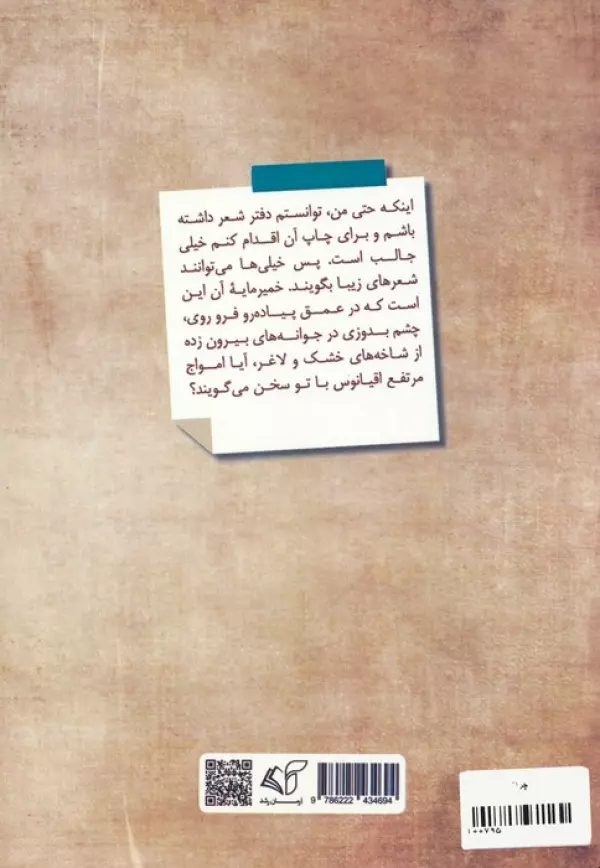 اینکه حتی من، توانستم دفتر شعر داشته
باشم و برای چاپ آن اقدام کنم خیلی
جالب است. پس خیلی‌ها می‌توانند
شعرهای زیبا بگویند. خمیرمایهٔ آن این
است که در عمق پیاده‌رو فرو روی،
چشم بدوزی در جوانه‌های بیرون زده
از شاخه‌های خشک و لاغر، آیا امواج
مرتفع اقیانوس با تو سخن می‌گویند؟
آرمان رشد
9 786222 434694
چ ۱
۱۰۰۷۹۵